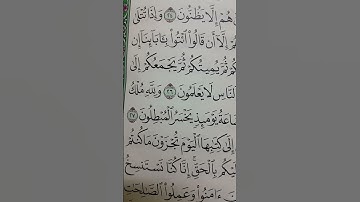 هُمْ إِلَّا يَظُنُّونَ ٢٤ وَإِذَا تُتْلَىٰ
إِلَّآ أَن قَالُوا۟ ٱئْتُوا۟ بِـَٔابَآئِنَآ إِن
كُمْ ثُمَّ يُمِيتُكُمْ ثُمَّ يَجْمَعُكُمْ إِلَىٰ
لنَّاسِ لَا يَعْلَمُونَ ٢٦ وَلِلَّهِ مُلْكُ
اعَةُ يَوْمَئِذٍ يَخْسَرُ ٱلْمُبْطِلُونَ ٢٧
إِلَىٰ كِتَٰبِهَا ٱلْيَوْمَ تُجْزَوْنَ مَا كُنتُمْ
يْكُم بِٱلْحَقِّ إِنَّا كُنَّا نَسْتَنسِخُ
ءَامَنُوا۟ وَعَمِلُوا۟ ٱلصَّٰلِحَٰتِ